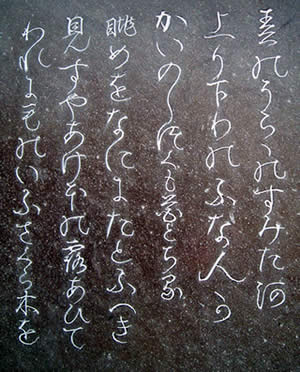 春のうらゝのすみた河
上り下りのふな人か
かいのしつくも花とちる
眺めをなににたとふへき
見すやあけほの露あひて
われにものいふさくら木を